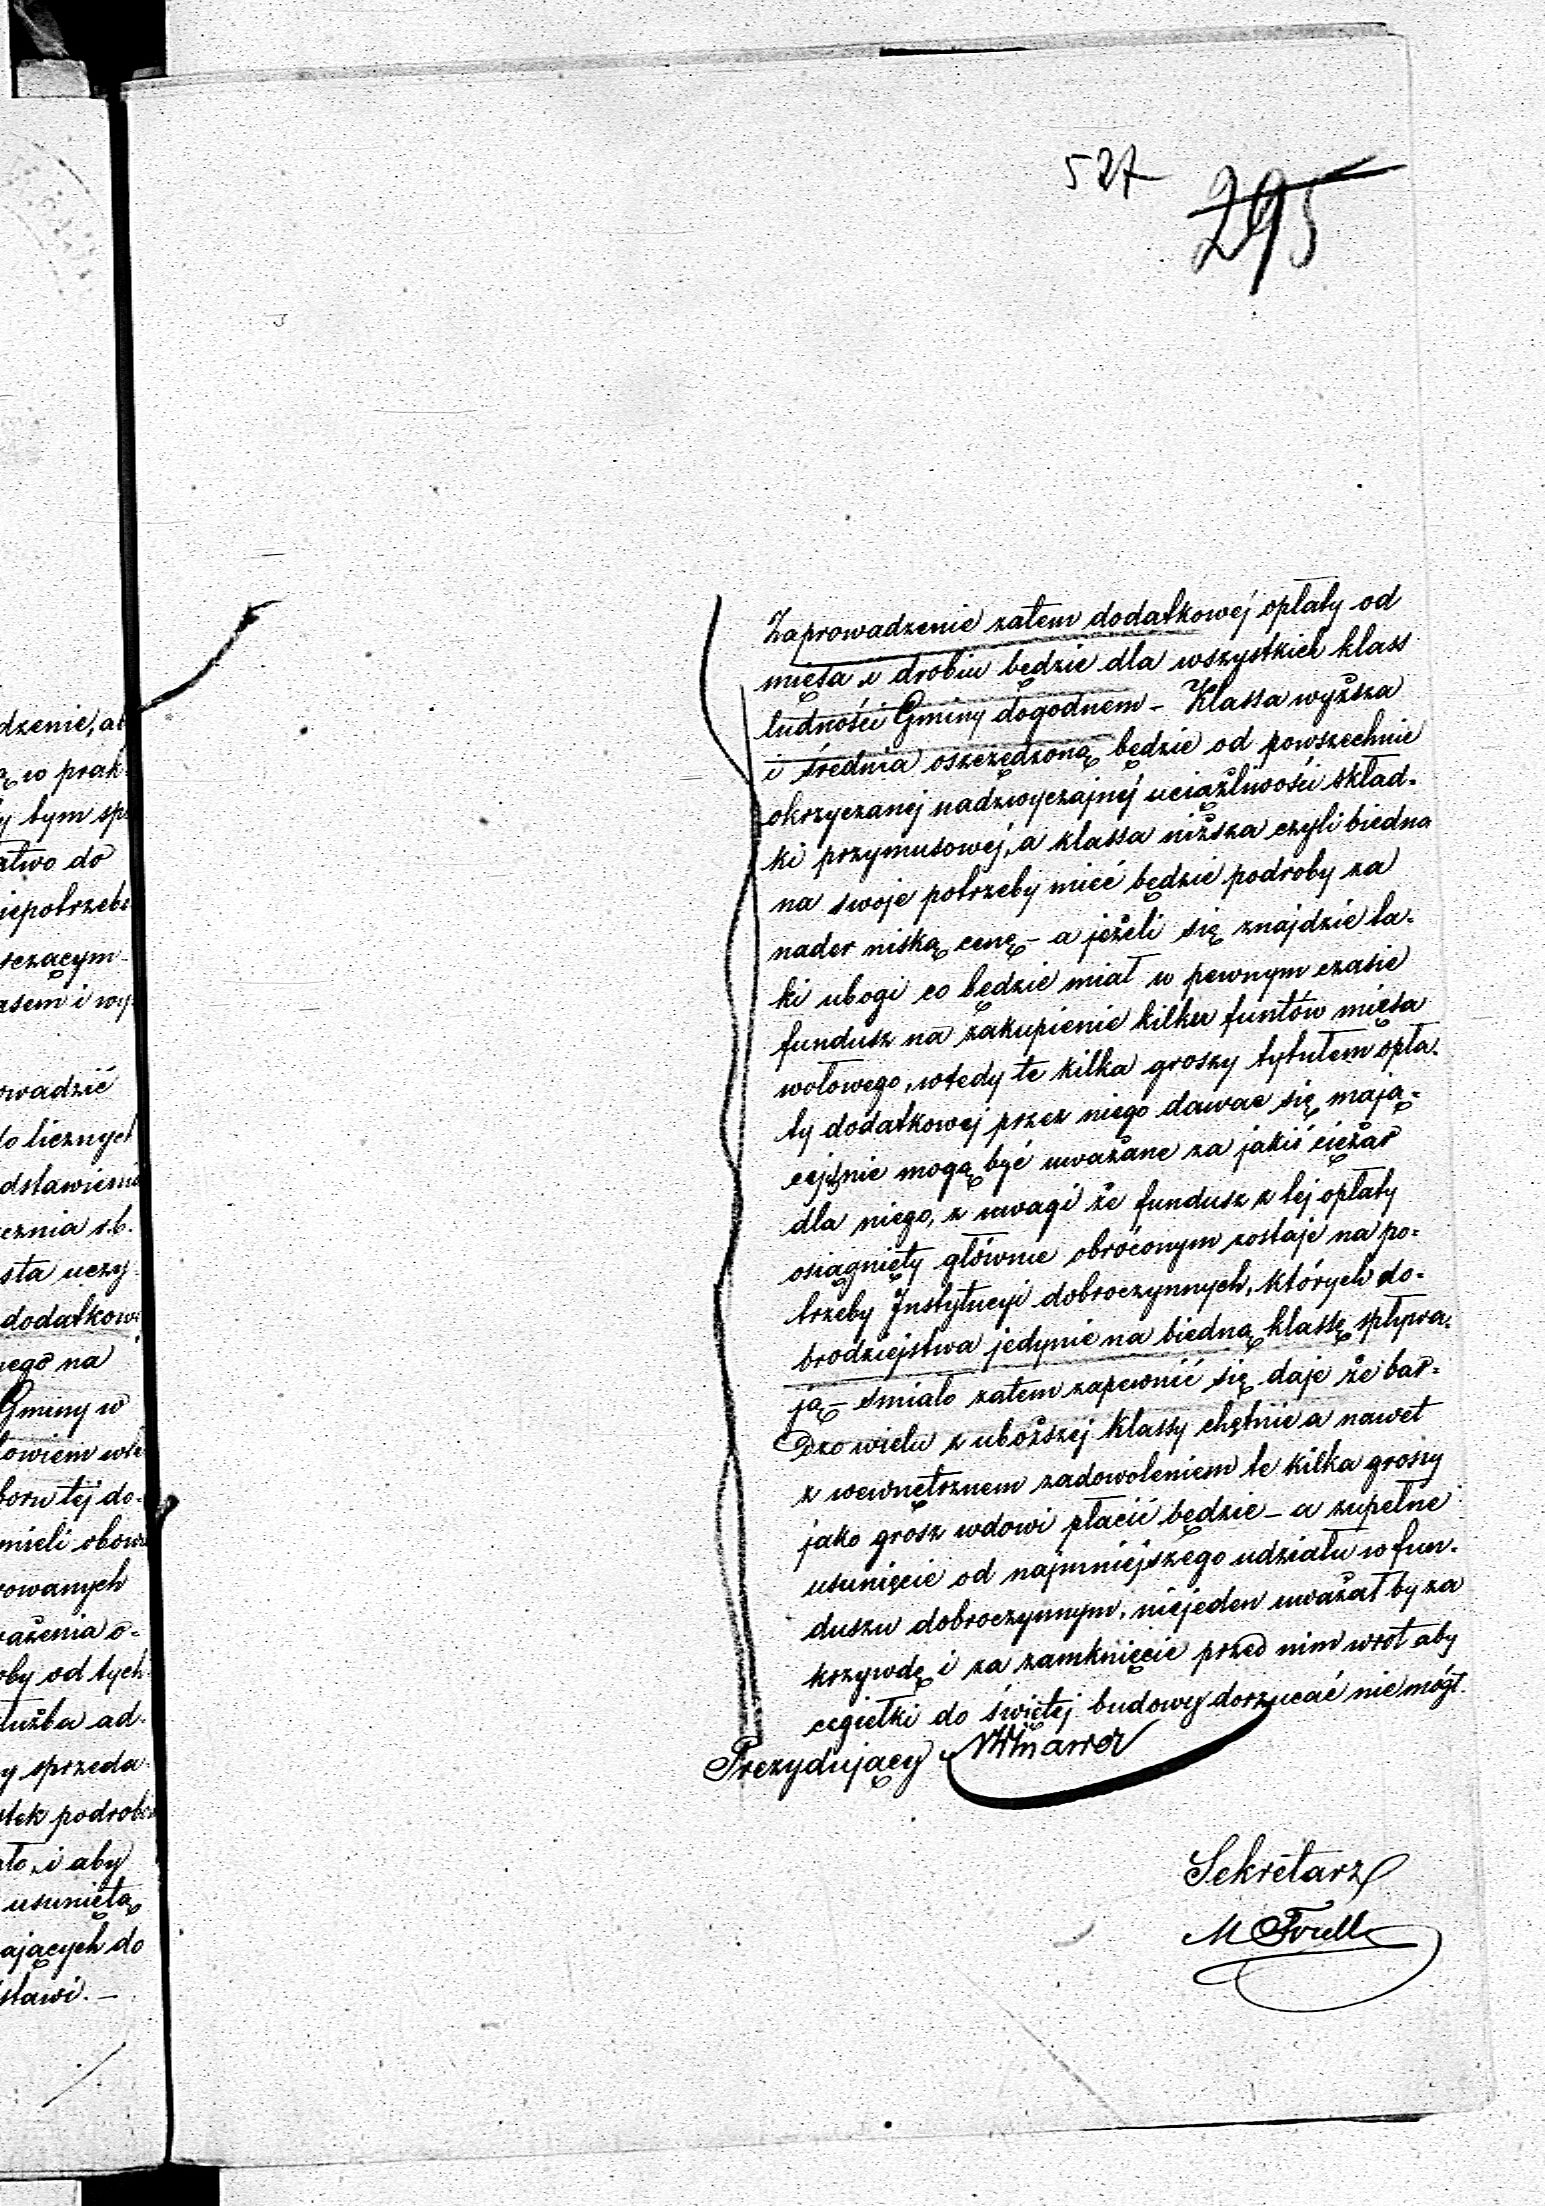 527
295
dzenie, ab
ę w prak
y tym spo
atwo do
iepotrzebo
sczącym
asem i wy-
owadzić
do licznych
dstawienia
cznia r.b.
sta uczy
dodatkow
nego na
Gminy w
lowiem
boru tej do-
mieli obow
rowanych
ażenia o-
oby od tych
łużba ad-
y sprzeda
tek podrob
ato, i aby
usuniętą
ających do
stawi. –
Zaprowadzenie zatem dodatkowéj opłaty od
mięsa i drobiu będzie dla wszystkich klass
ludności Gminy dogodnem – Klassa wyższa
i średnia oszczędzoną będzie od powszechnie
okrzyczanéj nadzwyczajnéj uciążliwości skład-
ki przymusowéj, a klassa niższa czyli biedna
na swoje potrzeby mieć będzie podroby za
nader niską cenę – a jeżeli się znajdzie ta-
ki ubogi co będzie miał w pewnym czasie
fundusz na zakupienie kilku funtów mięsa
wołowego, wtedy te kilka groszy tytułem opła-
ty dodatkowej przez niego dawac się mają-
cej, nie mogą być uważane za jakiś ciężar
dla niego, z uwagi że fundusz z tej opłaty
osiągnięty głównie obróconym zostaje na po-
trzeby Instytucyi dobroczynnych, których do-
brodziejstwa jedynie na biedną klassę spływa-
ją – śmiało zatem zapewnić się daje że bar-
dzo wielu z uboższej klassy chętnie a nawet
z wewnętrznem zadowoleniem te kilka groszy
jako grosz wdowi płacić będzie – a zupełne
usunięcie od najmniejszego udziału w fun-
duszu dobroczynnym, niejeden uważał by za
krzywdę i za zamknięcie przed nim wrot aby
cegiełki do świętej budowy dorzucać nie mógł.
Prezydujący
Sekretarz